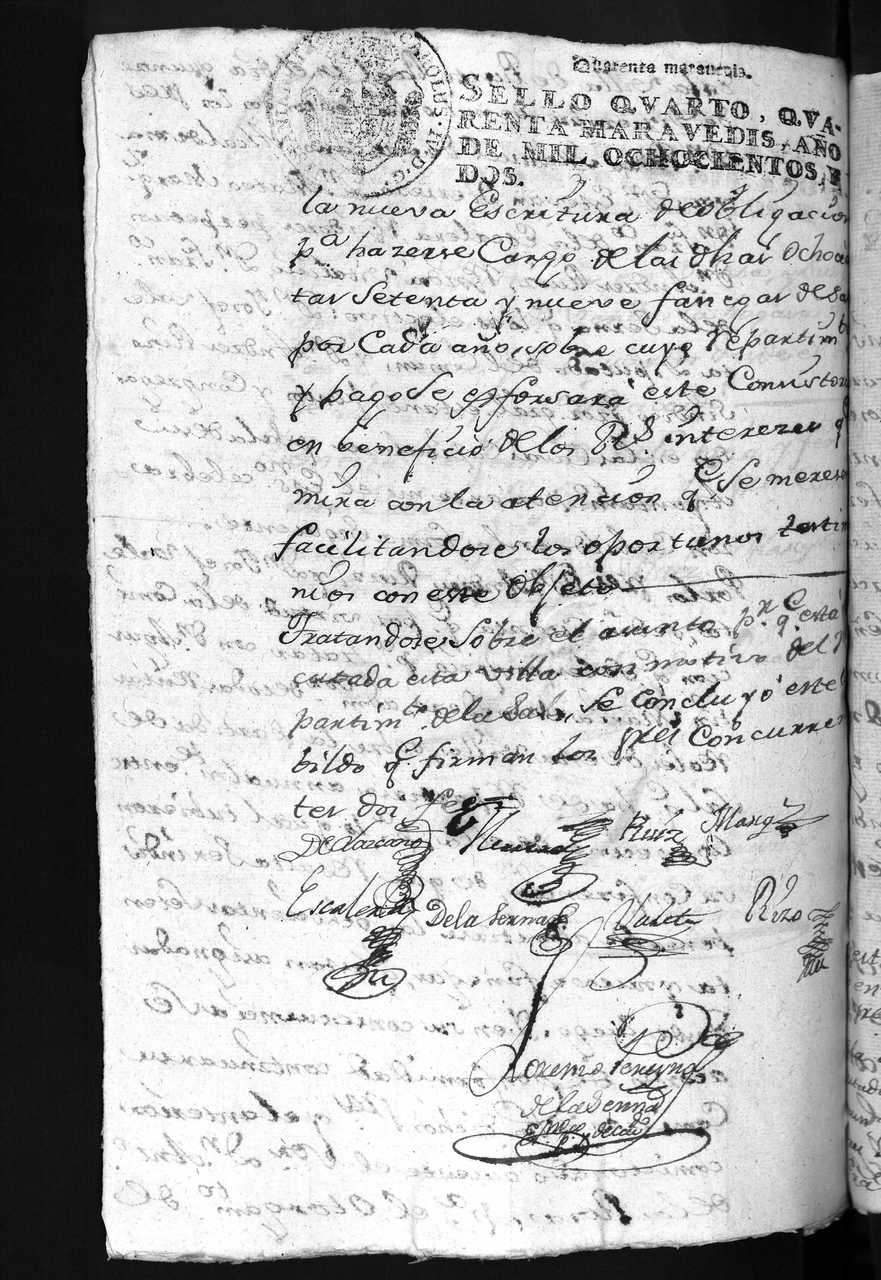 Quarenta marauedis.
SELLO QVARTO, QVA-
RENTA MARAVEDIS, AÑO
DE MIL OCHOCIENTOS, Y
DOS.
CAROLUS. IV. D. G.
la nueva Escritura de obligacion
pa hazerse Cargo de las dhas Ochoci
tas Setenta y nueve fanegas de Sa
por Cada año, sobre cuyo repartimto
y pago se esforsará este Consistor
en beneficio de los Rs. interezes q
mira con la atencion qe se meresen
facilitandose los oportunos testim
nios con este Objeto
Tratandose sobre el asunto pr qe está
cutada esta villa con motivo del R
partimto de la Sal, se concluyó este
bildo qe firman los Sres Concurre
tes doi fee
De Lazcano
Ruiz
Marqz
Escalera
De la Serna
Rizo
Lorenzo
de la Serna